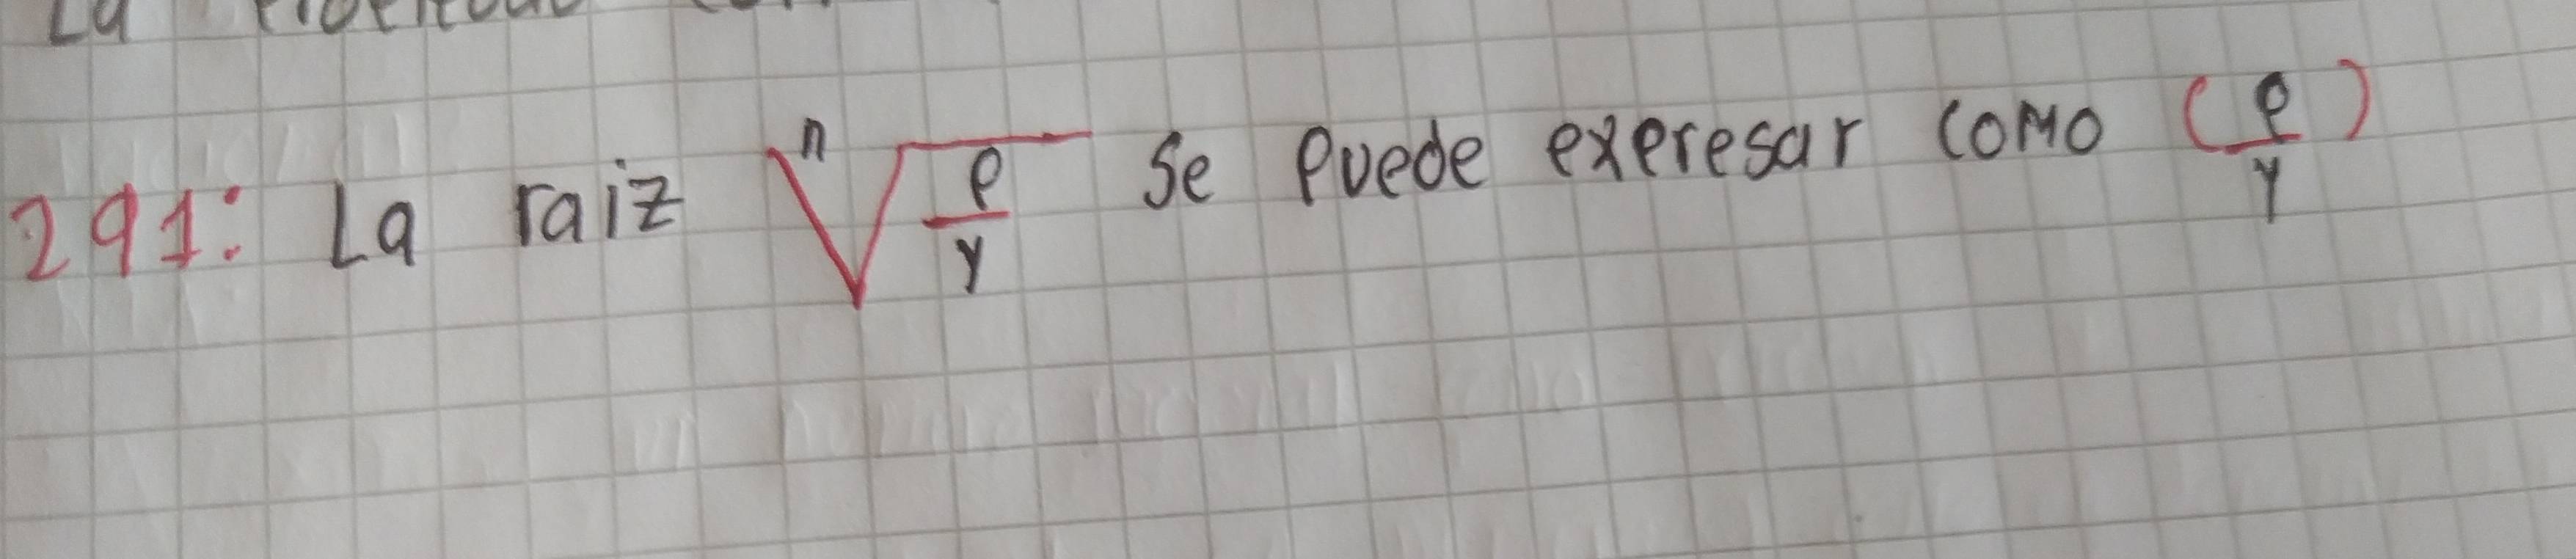 La
291: La raiz ⁿ√(p/y) se puede expresar como (p/y)